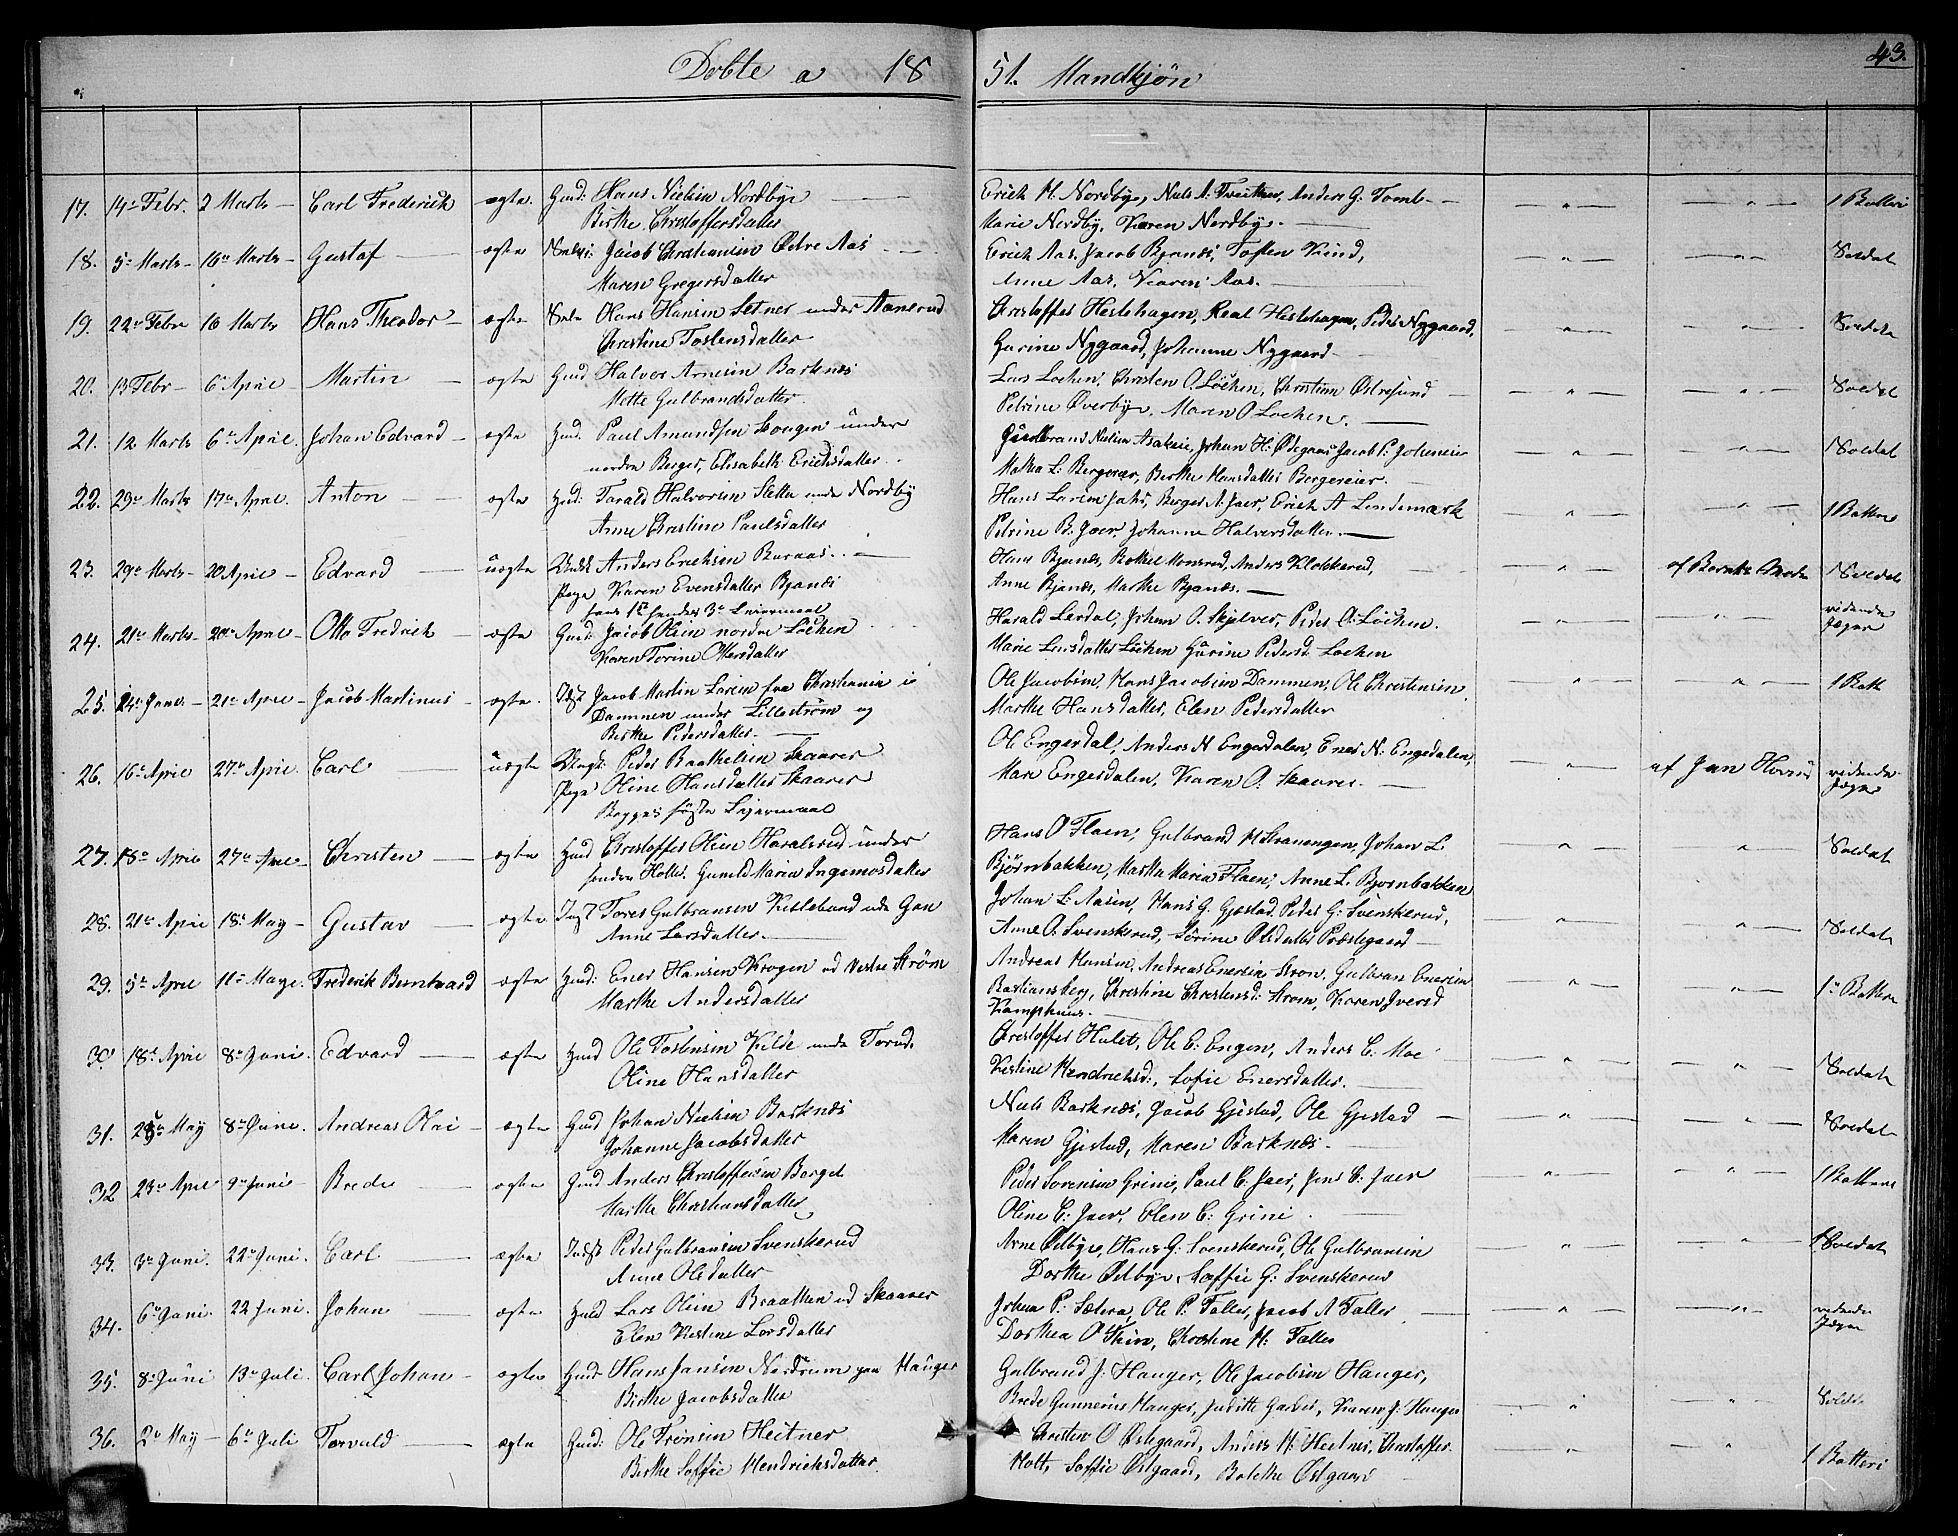 Døbte a 1851. Mandkjøn
43.
17. 14 Febr. 2 Marts Carl Frederich ægte Gmd: Hans Nielsen Nordbye
Birthe Christoffersdatter
Erich H. Nordbye, Niels A. Anders G. Tomb
Marie Nordby, Karen Nordbye.
1 Batteri
18. 5 Marts 16 Marts Gustaf ægte Jacob Christiansen Østre Aas
Maren Gregersdatter
Erich Aas, Jacob Bjanæs, Tosten
Anne Aas, Karen Aas.
Soldat
19. 22 Febr 16 Marts Hans Theodor ægte Hans Hansen Setner under Aamerud
Christine Tostensdatter
Christoffer Hestehagen, Real Hestehagen, Peder Nygaard,
Gurine Nygaard, Johanne Nygaard
Soldat
20. 13 Febr 6 April Martin ægte Gmd Halvor Arnesen Barknæs
Mette Gulbrandsdatter
Lars Løchen, Christen O. Løchen, Christian Østresund
Petrine Øverbye, Maren O. Løchen.
Soldat
21. 12 Marts 6 April Johan Edvard ægte Hmd. Paul Amundsen Hougen under
nordre Berger, Elisabeth Erichsdatter
Gulbrand Nielsen Asakeie, Johan H. Ødegaard Jacob P. Johnsrud
Mathea L. Bergereier, Birthe Hansdatter Bergereier.
Soldat
22. 29 Marts 17 April. Anton ægte Hmd: Tarald Halvorsen Sletta unde Nordby
Anne Christine Paulsdatter
Hans Larsen Jahr, Berger A. Jaer, Erich A Lindemark
Petrine B. Jaer, Johanne Halversdatter.
1 Batteri
23. 29 Marts 20 April Edvard uægte Anders Erichsen Buraas
Pige Karen Evensdatter Bjanæs
hans 1te hendes 3die Leiermaal
Hans Bjanæs, Bottel Monsrud, Anders Klokkerud,
Anne Bjanæs, Marthe Bjanæs.
af Bernts Moder
Soldat
24. 21 Marts 20 April Otto Fredrich ægte Gmd: Jacob Olsen nordre Løchen
Karen Torine Ottersdatter
Harald Lerdal, Johan O. Skjelver, Peder O. Løchen.
Marie Larsdatter Løchen Gurine Pedersd Løchen
ridende
Jæger
25. 24 Janr. 21 April Jacob Martinus ægte Jacob Martin Larsen fra Christiania i
Dammen under Lillestrøm og
Birthe Pedersdatter.
Ole Jacobsen, Hans Jacobsen Dammen, Ole Christensen
Marthe Hansdatter, Elen Pedersdatter
1 Batt
26. 16 April 27 April. Carl uægte Ungk: Peder Baathelsen Skaarer
Pige Oline Hansdatter Skaarer
Begges første Leiermaal
Ole Engerdal, Anders N Engerdalen, Ener N. Engedalen,
Mari Engerdalen, Karen O. Skaarer.
ridende
Jæger
27. 18 April 27 April Christen ægte Hmd Christoffer Olsen Haralsrud under
søndre Holter, Gunild Maria Ingemosdatter
Hans O Flaen, Gulbrand H Stranengen, Johan L.
Bjørnbakken, Marthe Maria Flaen, Anne L. Bjørnbakken
Soldat
28. 21 April 18 May Gustav ægte Tores Gulbransen Kitlebond ude Gan
Anne Larsdatter.
Johan L. Aasen, Hans G. Gjestad, Peder G. Svenskerud,
Anne O. Svenskerud, Sørine Olsdatter Præstegaard
Soldat
29. 5 April 11 Maye. Frederik Berntaard ægte Hmd: Ener Hansen Krogen ud Vestre Strøm
Marthe Andersdatter
Andreas Hansen, Andreas Enersen Strøm, Gulbran Enersen
Bastiansberg, Christine Christensd: Strøm, Karen Iversd
Kamphuus.
1 Batteri
30. 18 April 8 Juni. Edvard ægte Hmd Ole Tostensen Kilde unde Torud.
Oline Hansdatter
Christoffer Hulet, Ole E. Engen, Anders C. Moe
Kistine Hendrichsd., Sofie Enersdatter.
Soldat
31. May 8 Juni. Andreas Olai ægte Gmd Johan Nielsen Barknæs
Johanne Jacobsdatter
Niels Barknæs, Jacob Gjestad, Ole Gjestad
Maren Gjestad, Maren Barknæs.
Soldat
32 23 April 9 Juni Brede ægte Gmd Anders Christoffersen Berget
Marthe Christiansdatter
Peder Sørensen Grini, Paul C. Jaer, Jens C. Jaer
Oline C. Jaer, Elen C. Grini
1 Batteri
33. 3 Juni. 22 Juni. Carl ægte Inds: Peder Gulbransen Svenskerud
Anne Olsdatter
Arne Ødbye, Hans G. Svenskerud, Ole Gulbransen
Dorthe Ødbye, Saffie G. Svenskerud
Soldat
34. 6 Juni 22 Juni. Johan ægte Hmd Lars Olsen Braatten ud Skaarer
Elen Kistine Larsdatter
Johan P. Sætera, Ole P. Faller, Jacob A Faller
Dorthea O Thin, Christine H. Faller
ridende
Jæger
35. 8 Juni 13 Juli. Carl Johan ægte Hmd Hans Jansen Nordrum paa Hauger
Birthe Jacobsdatter
Gulbrand J. Hauger, Ole Jacobsen Hauger,
Brede Gunnerius Hauger, Judith Karen J. Hauger
Soldat
36. 2 May 6 Juli Torvald ægte Gmd: Ole Tronsen Heitner
Birthe Saffie Hendrichsdatter
Christen O Østegaard, Anders H. Heitner, Christoffer
Holt, Saffie Østgaard, Bolethe Østgaard
1 Batteri